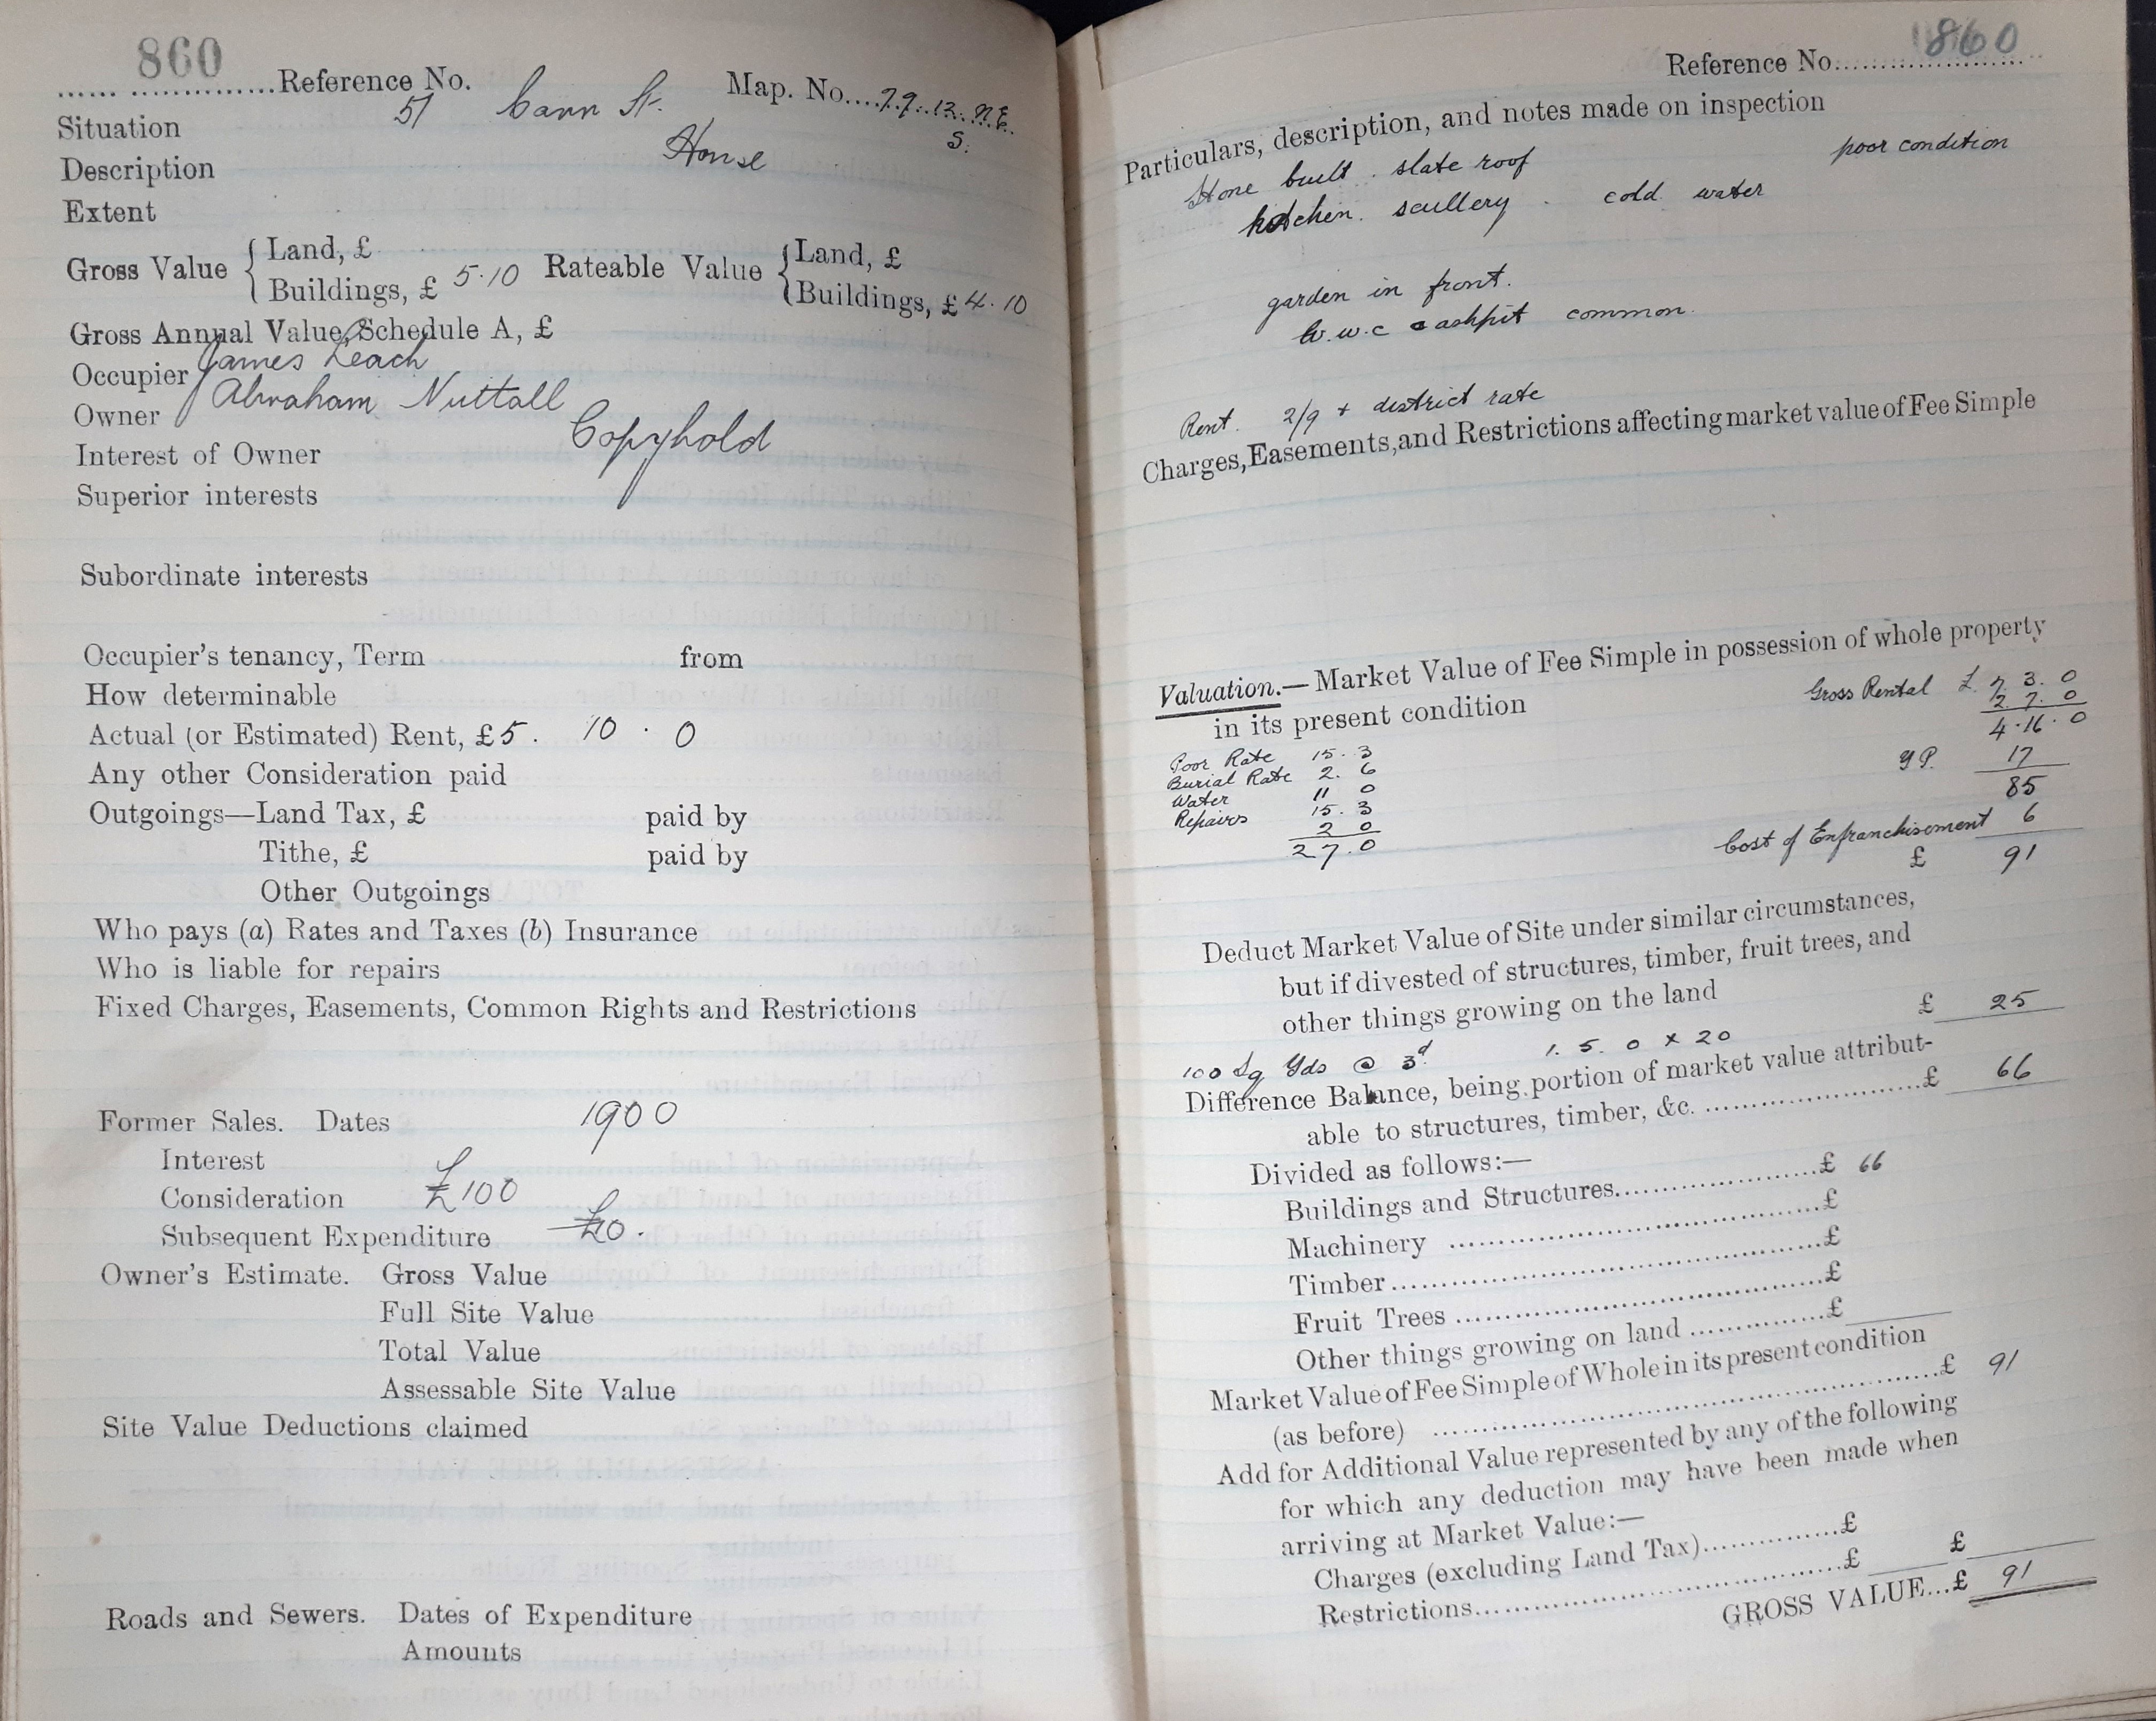 860
Reference No. Map. No. 79.12.N.E.
S.
Situation 51 Cann St.
Description House
Extent
Gross Value { Land, £ Rateable Value { Land, £
Buildings, £ 5.10 Buildings, £ 4.10
Gross Annual Value, Schedule A, £
Occupier James Leach
Owner Abraham Nuttall
Interest of Owner Copyhold
Superior interests
Subordinate interests
Occupier's tenancy, Term from
How determinable
Actual (or Estimated) Rent, £ 5. 10. 0
Any other Consideration paid
Outgoings—Land Tax, £ paid by
Tithe, £ paid by
Other Outgoings
Who pays (a) Rates and Taxes (b) Insurance
Who is liable for repairs
Fixed Charges, Easements, Common Rights and Restrictions
Former Sales. Dates 1900
Interest
Consideration £100
Subsequent Expenditure £10.
Owner's Estimate. Gross Value
Full Site Value
Total Value
Assessable Site Value
Site Value Deductions claimed
Roads and Sewers. Dates of Expenditure
Amounts
Reference No. 860
Particulars, description, and notes made on inspection
Stone built. slate roof poor condition
kitchen. scullery. cold water
garden in front.
W.W.C ashpit common.
Rent. 2/9 + district rate
Charges, Easements, and Restrictions affecting market value of Fee Simple
Valuation.—Market Value of Fee Simple in possession of whole property
in its present condition Gross Rental £ 7. 3. 0
2. 7. 0
4.16.0
Poor Rate 15. 3 YP. 17
Burial Rate 2. 6 85
Water 11 0 Cost of Enfranchisement 6
Repairs 15. 3 £ 91
2 0
2 7. 0
Deduct Market Value of Site under similar circumstances,
but if divested of structures, timber, fruit trees, and
other things growing on the land £ 25
100 Sq Yds @ 3d 1. 5. 0 x 20
Difference Balance, being portion of market value attribut-
able to structures, timber, &c. £ 66
Divided as follows:—
Buildings and Structures £ 66
Machinery £
Timber £
Fruit Trees £
Other things growing on land £
Market Value of Fee Simple of Whole in its present condition
(as before) £ 91
Add for Additional Value represented by any of the following
for which any deduction may have been made when
arriving at Market Value:—
Charges (excluding Land Tax) £
Restrictions £ £
GROSS VALUE...£ 91